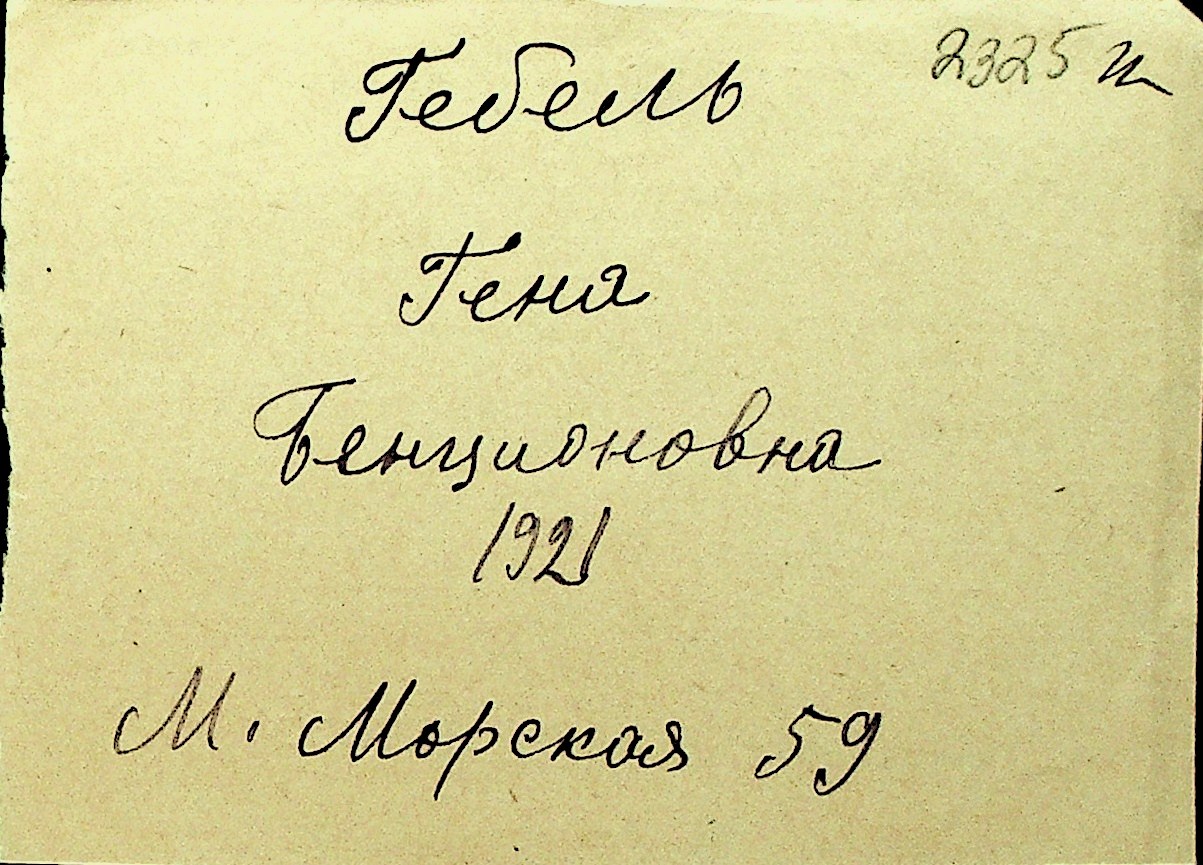 2325 н
Гебель
Геня
Бенционовна
1921
М. Морская 59